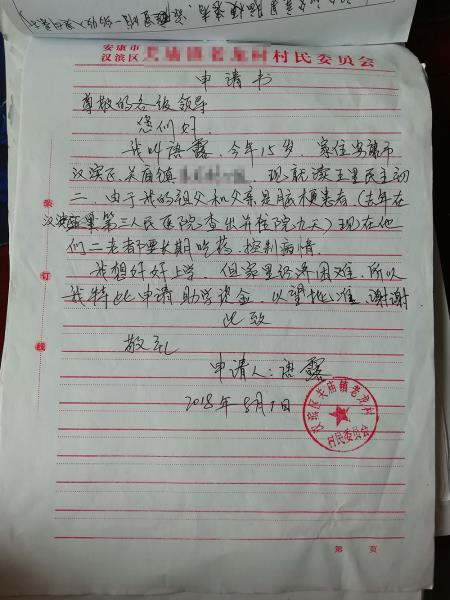 安康市
汉滨区 村民委员会
申请书
尊敬的各级领导
您们好
我叫语露、今年15岁、家住安康市
汉滨区关庙镇 现就读五里民主初
二、由于我的祖父和父亲是脑梗患者(去年在
汉滨区第三人民医院查出并住院九天)现在他
们二老都要长期吃药、控制病情
我想好好上学、但家里经济困难、所以
我特此申请助学资金、以望批准、谢谢
此致
敬礼
申请人:语露
2018年8月1日
装
订
线
汉滨区关庙镇老龙村
村民委员会
第 页